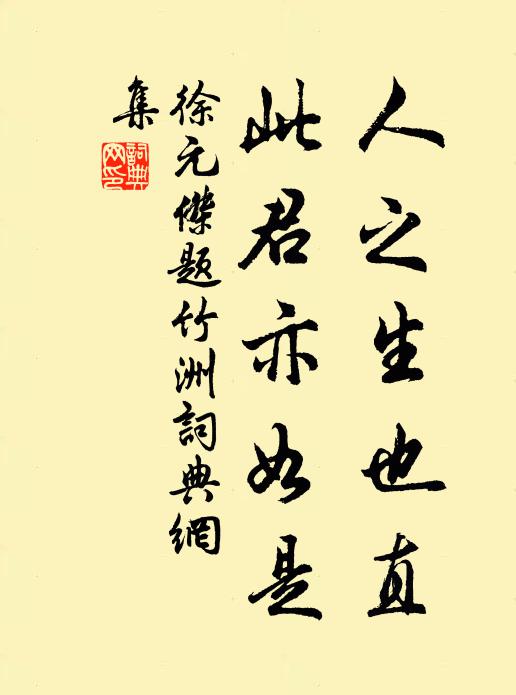 人之生也直
此君亦如是
徐元傑題竹洲詞典網
集
詞典
網印